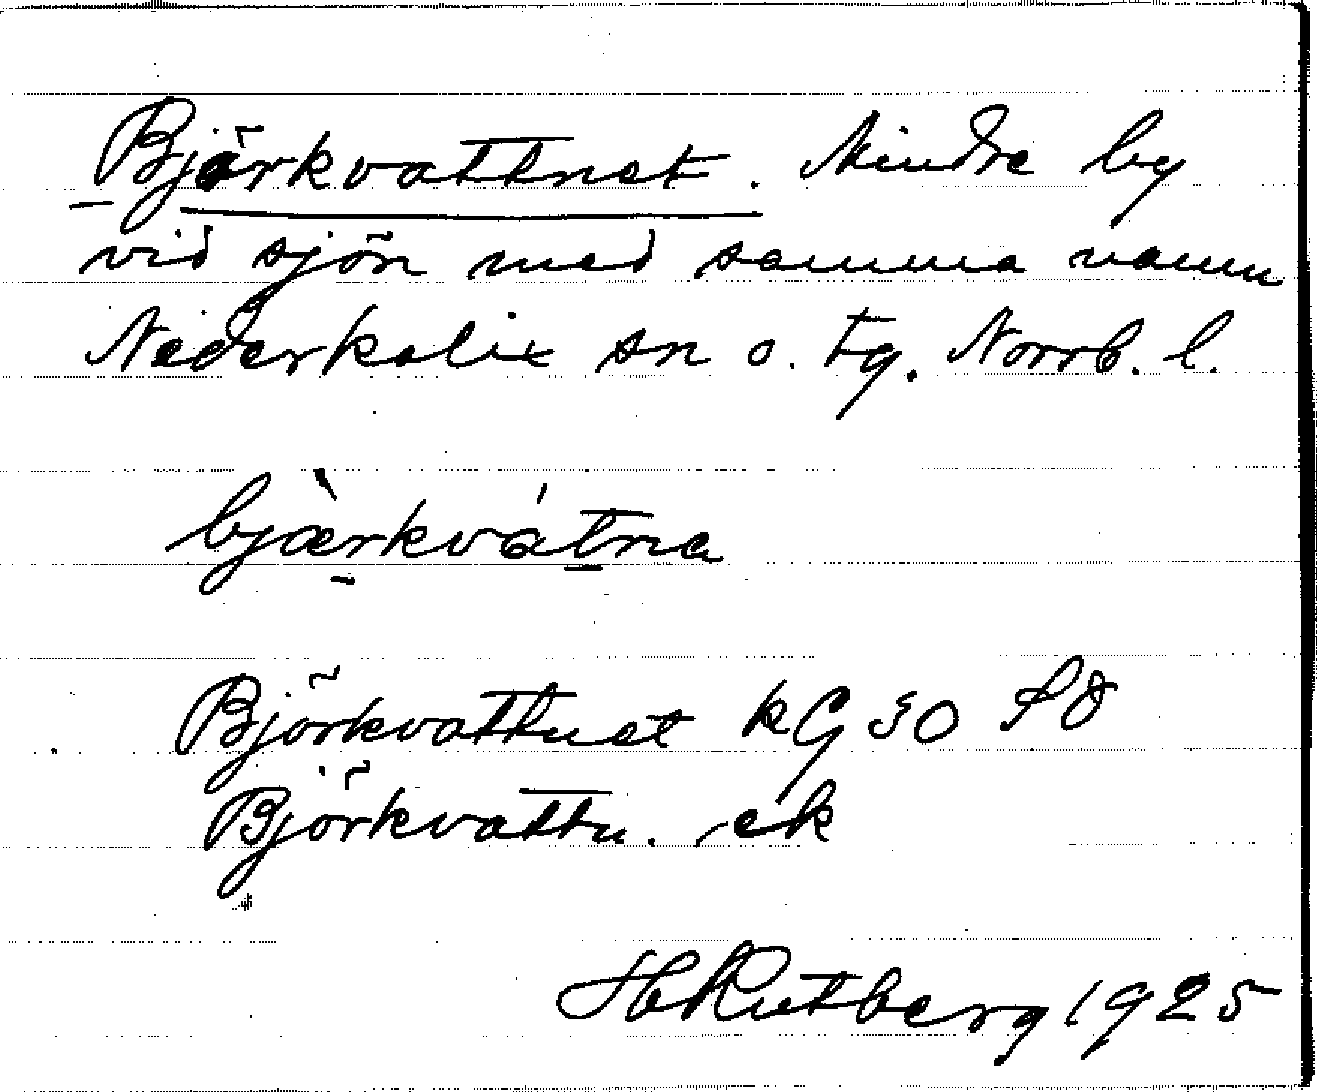 Björkvattnet. Mindre by
vid sjön med samma namn
Nederkalix sn o. tg. Norrb. l.
bjærkvátna
Björkvattnet kG 30 SO
Björkvattn. ek
H Rutberg 1925